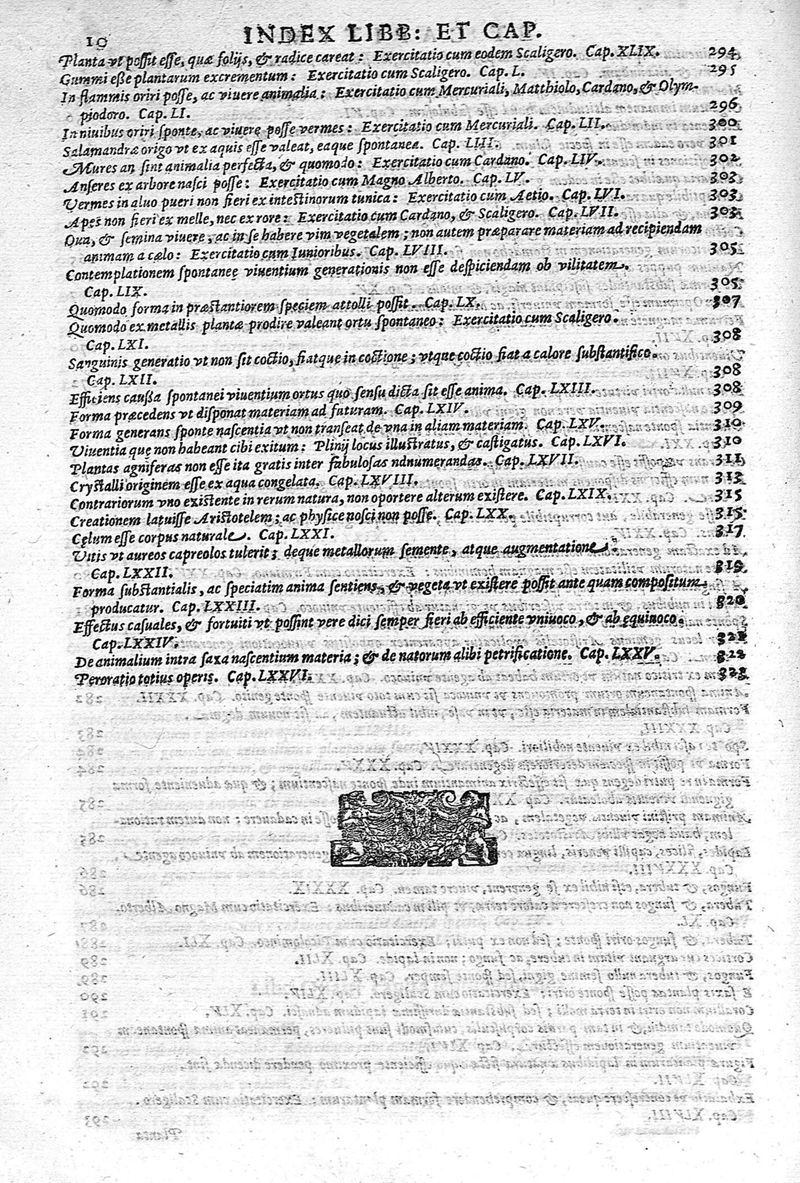 10 INDEX LIBB: ET CAP.
Planta vt possit esse, quæ folijs, & radice careat: Exercitatio cum eodem Scaligero. Cap. XLIX. 294
Gummi esse plantarum excrementum: Exercitatio cum Scaligero. Cap. L. 295
In flammis oriri posse, ac viuere animalia: Exercitatio cum Mercuriali, Matthiolo, Cardano, & Olym-
piodoro. Cap. LI. 296
In niuibus oriri sponte, ac viuere posse vermes: Exercitatio cum Mercuriali. Cap. LII. 300
Salamandræ origo vt ex aquis esse valeat, eaque spontanea. Cap. LIII. 301
Mures an sint animalia perfecta, & quomodo: Exercitatio cum Cardano. Cap. LIV. 302
Anseres ex arbore nasci posse: Exercitatio cum Magno Alberto. Cap. LV. 303
Vermes in aluo pueri non fieri ex intestinorum tunica: Exercitatio cum Aetio. Cap. LVI. 303
Apes non fieri ex melle, nec ex rore: Exercitatio cum Cardano, & Scaligero. Cap. LVII. 303
Oua, & semina viuere, ac in se habere vim vegetalem; non autem præparare materiam ad recipiendam
animam a cælo: Exercitatio cum Iunioribus. Cap. LVIII. 305
Contemplationem spontaneę viuentium generationis non esse despiciendam ob vilitatem.
Cap. LIX. 305
Quomodo forma in præstantiorem speciem attolli possit. Cap. LX. 307
Quomodo ex metallis plantæ prodire valeant ortu spontaneo: Exercitatio cum Scaligero.
Cap. LXI. 308
Sanguinis generatio vt non sit coctio, fiatque in coctione; vtque coctio fiat a calore substantifico.
Cap. LXII. 308
Efficiens caussa spontanei viuentium ortus quo sensu dicta sit esse anima. Cap. LXIII. 308
Forma præcedens vt disponat materiam ad futuram. Cap. LXIV. 309
Forma generans sponte nascentia vt non transeat de vna in aliam materiam. Cap. LXV. 310
Viuentia quę non habeant cibi exitum: Plinij locus illustratus, & castigatus. Cap. LXVI. 310
Plantas agniferas non esse ita gratis inter fabulosas adnumerandas. Cap. LXVII. 311
Crystalli originem esse ex aqua congelata. Cap. LXVIII. 313
Contrariorum vno existente in rerum natura, non oportere alterum existere. Cap. LXIX. 315
Creationem latuisse Aristotelem; ac physice nosci non posse. Cap. LXX. 315
Cęlum esse corpus naturale. Cap. LXXI. 317
Vitis vt aureos capreolos tulerit; deque metallorum semente, atque augmentatione.
Cap. LXXII. 319
Forma substantialis, ac speciatim anima sentiens, & vegeta vt existere possit ante quam compositum
producatur. Cap. LXXIII. 320
Effectus casuales, & fortuiti vt possint vere dici semper fieri ab efficiente vniuoco, & ab ęquiuoco.
Cap. LXXIV. 321
De animalium intra saxa nascentium materia; & de natorum alibi petrificatione. Cap. LXXV. 322
Peroratio totius operis. Cap. LXXVI. 323